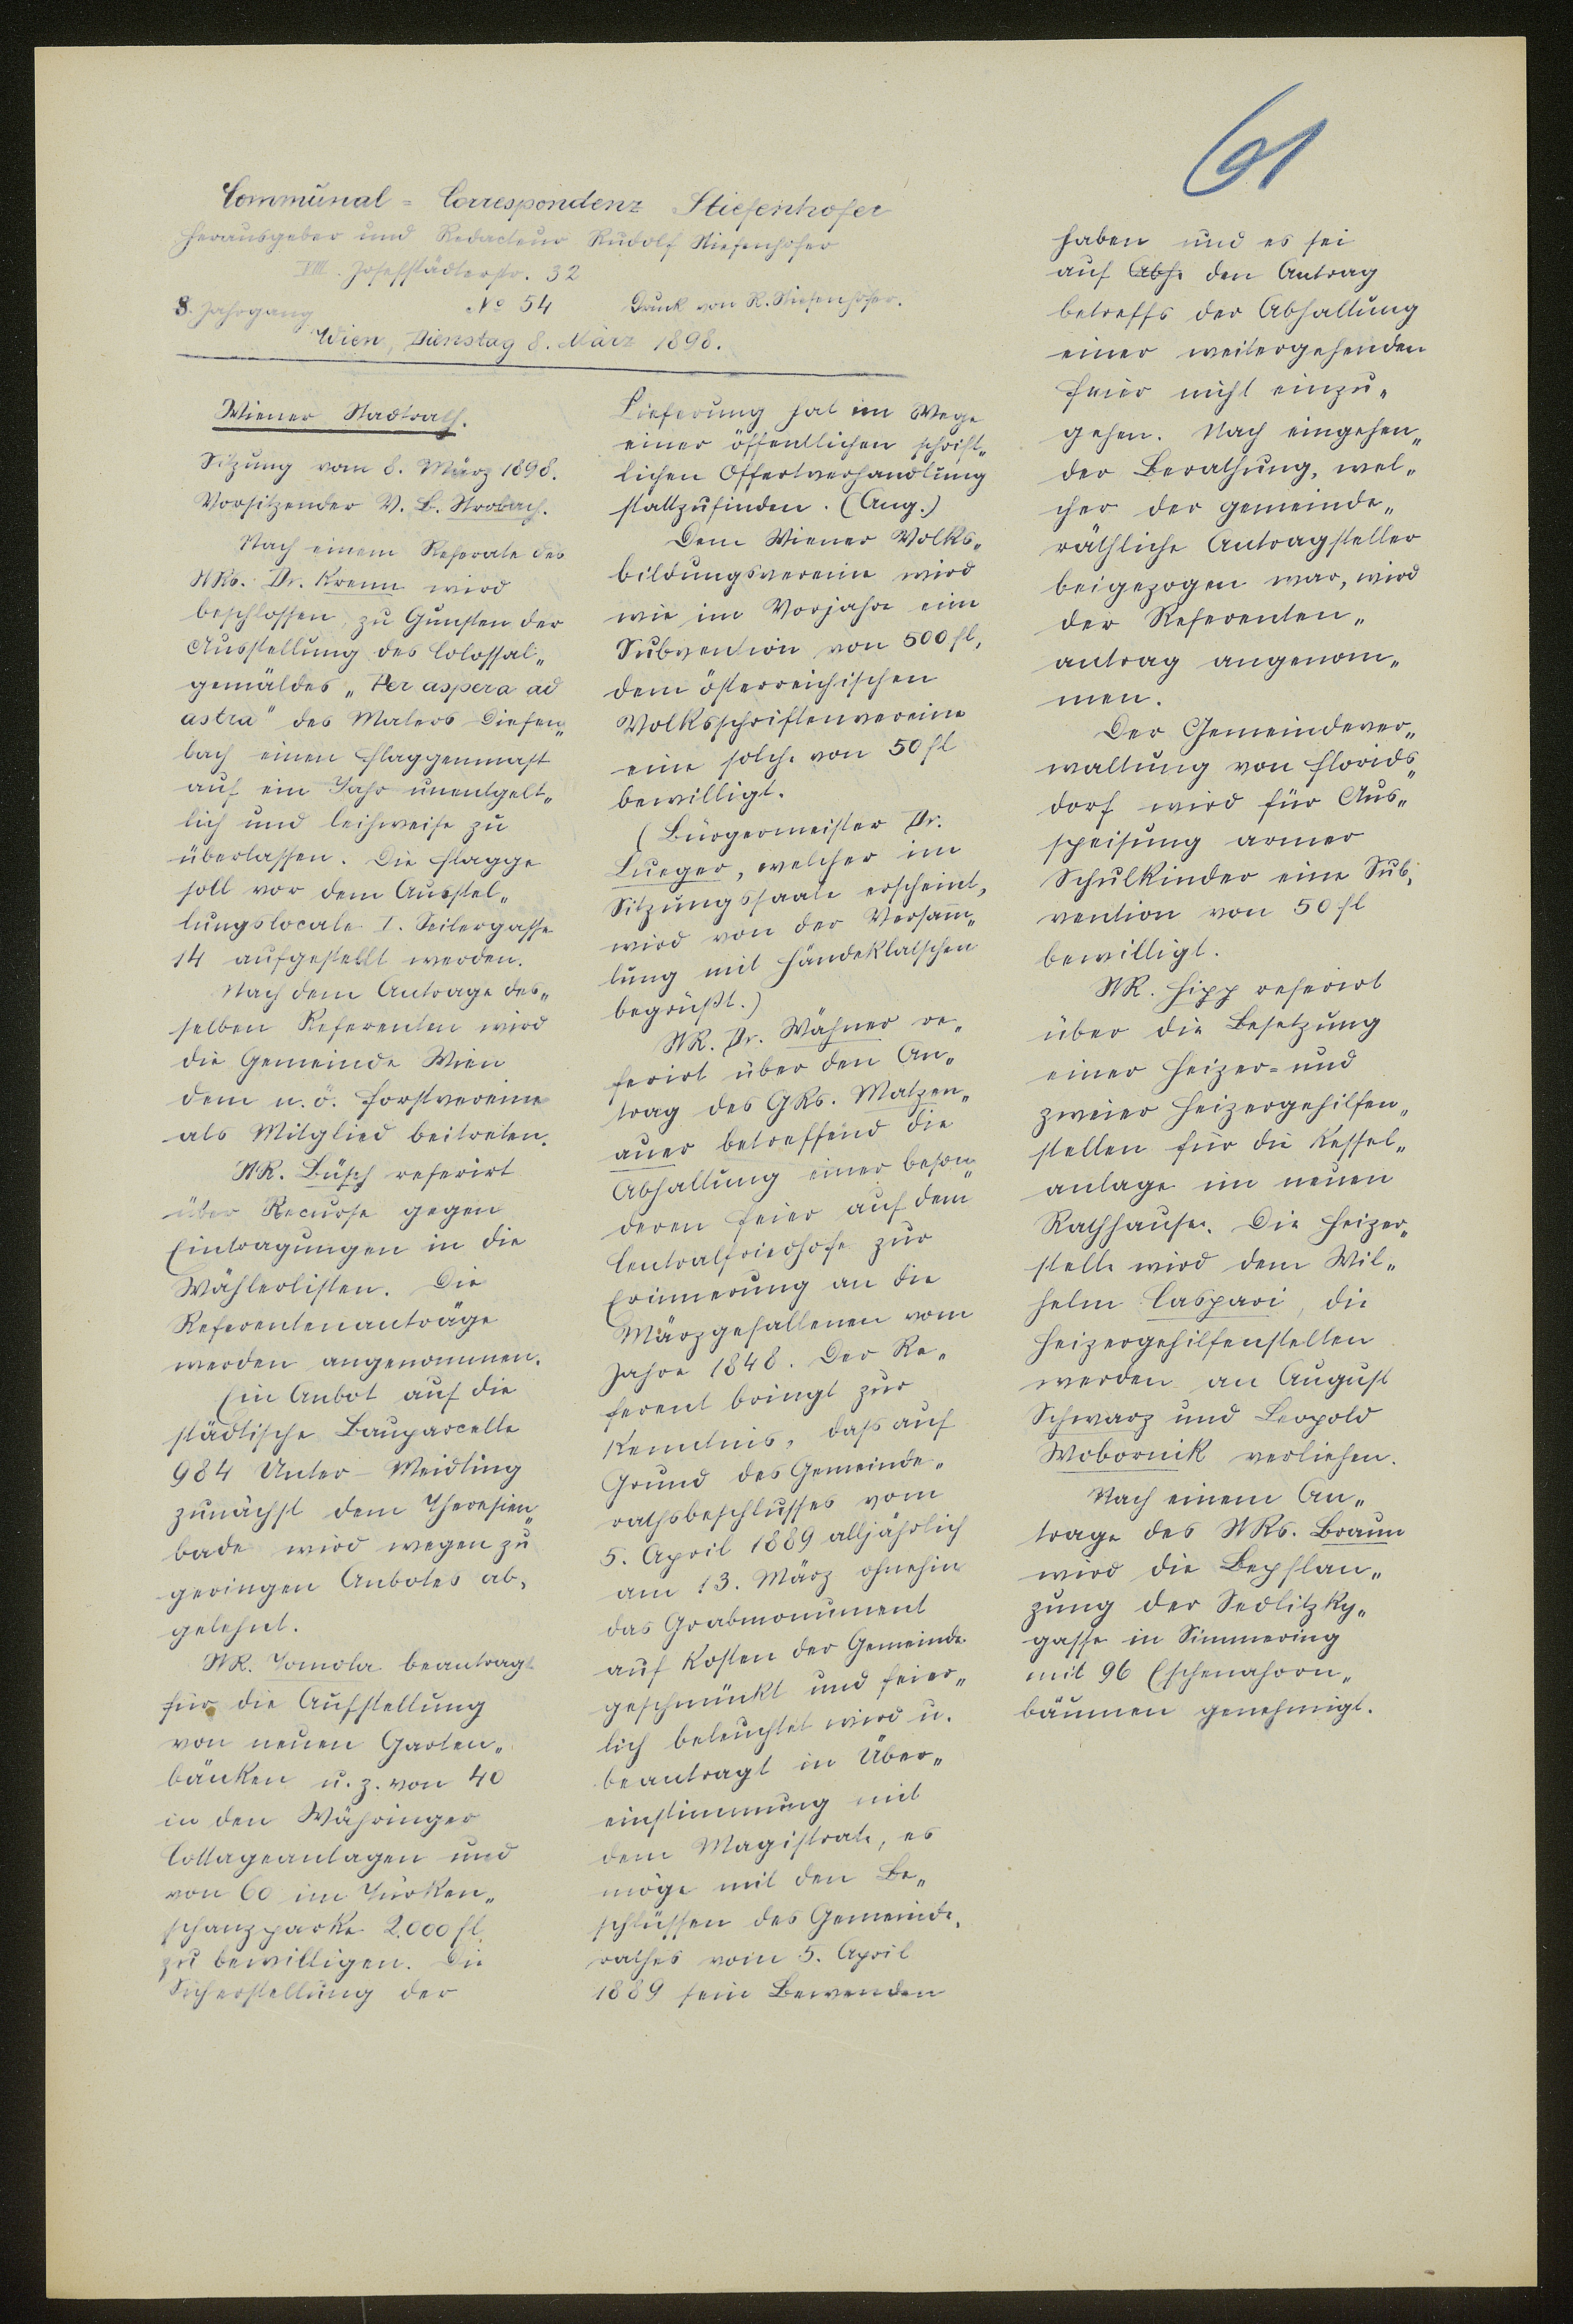 61
Communal=Correspondenz Stiefenhofer
Herausgeber und Redacteur Rudolf Stiefenhofer
VIII. Josefstädterstr. 32
8. Jahrgang No 54 Druck von R. Stiefenhofer.
Wien, Dienstag 8. März 1898.
Wiener Stadtrath.
Sitzung vom 8. März 1898.
Vorsitzender V. B. Strobach.
Nach einem Referate des
StRs. Dr. Krenn wird
beschlossen, zu Gunsten der
Ausstellung des Colossal„
gemäldes „Per aspera ad
astra" des Malers Diefen„
bach einen Flaggenmast
auf ein Jahr unentgelt„
lich und leihweise zu
überlassen. Die Flagge
soll vor dem Ausstel„
lungslocale I. Seilergasse
14 aufgestellt werden.
Nach dem Antrage des„
selben Referenten wird
die Gemeinde Wien
dem n. ö. Forstvereine
als Mitglied beitreten.
StR. Büsch referirt
über Recurse gegen
Eintragungen in die
Wählerlisten. Die
Referentenanträge
werden angenommen.
Ein Anbot auf die
städtische Bauparcelle
984 Unter-Meidling
zunächst dem Theresien„
bade wird wegen zu
geringen Anbotes ab„
gelehnt.
StR. Tomola beantragt
für die Aufstellung
von neuen Garten„
bänken u. z. von 40
in den Währinger
Cottageanlagen und
von 60 im Türken„
schanzparke 2.000 fl.
zu bewilligen. Die
Sicherstellung der
Lieferung hat im Wege
einer öffentlichen schrift„
lichen Offertverhandlung
stattzufinden. (Ang.)
Dem Wiener Volks„
bildungsvereine wird
wie im Vorjahre eine
Subvention von 500 fl,
dem österreichischen
Volksschriftenvereine
eine solche von 50 fl
bewilligt.
(Bürgermeister Dr.
Lueger, welcher im
Sitzungssaale erscheint,
wird von der Versam̄„
lung mit Händeklatschen
begrüßt.)
StR. Dr. Wähner re„
ferirt über den An„
trag des GRs. Matzen„
auer betreffend die
Abhaltung einer beson„
deren Feier auf dem
Centralfriedhofe zur
Erinnerung an die
Märzgefallenen vom
Jahre 1848. Der Re„
ferent bringt zur
Kenntnis, dass auf
Grund des Gemeinde„
rathsbeschlusses vom
5. April 1889 alljährlich
am 13. März ohnehin
das Grabmonument
auf Kosten der Gemeinde
geschmückt und feier„
lich beleuchtet wird u.
beantragt in Über„
einstimmung mit
dem Magistrate, es
möge mit den Be„
schlüssen des Gemeinde„
rathes vom 5. April
1889 sein Bewenden
haben und es sei
auf Abh. den Antrag
betreffs der Abhaltung
einer weitergehenden
Feier nicht einzu„
gehen. Nach eingehen„
der Berathung, wel„
cher der gemeinde„
räthliche Antragsteller
beigezogen war, wird
der Referenten„
antrag angenom„
men.
Der Gemeindever„
waltung von Florids„
dorf wird für Aus„
speisung armer
Schulkinder eine Sub„
vention von 50 fl
bewilligt.
StR. Hipp referirt
über die Besetzung
einer Heizer- und
zweier Heizergehilfen„
stellen für die Kessel„
anlage im neuen
Rathhause. Die Heizer„
stelle wird dem Wil„
helm Caspari, die
Heizergehilfenstellen
werden an August
Schwarz und Leopold
Wobornik verliehen.
Nach einem An„
trage des StRs. Braun
wird die Bepflan„
zung der Sedlitzky„
gasse in Simmering
mit 96 Eschenahorn„
bäumen genehmigt.